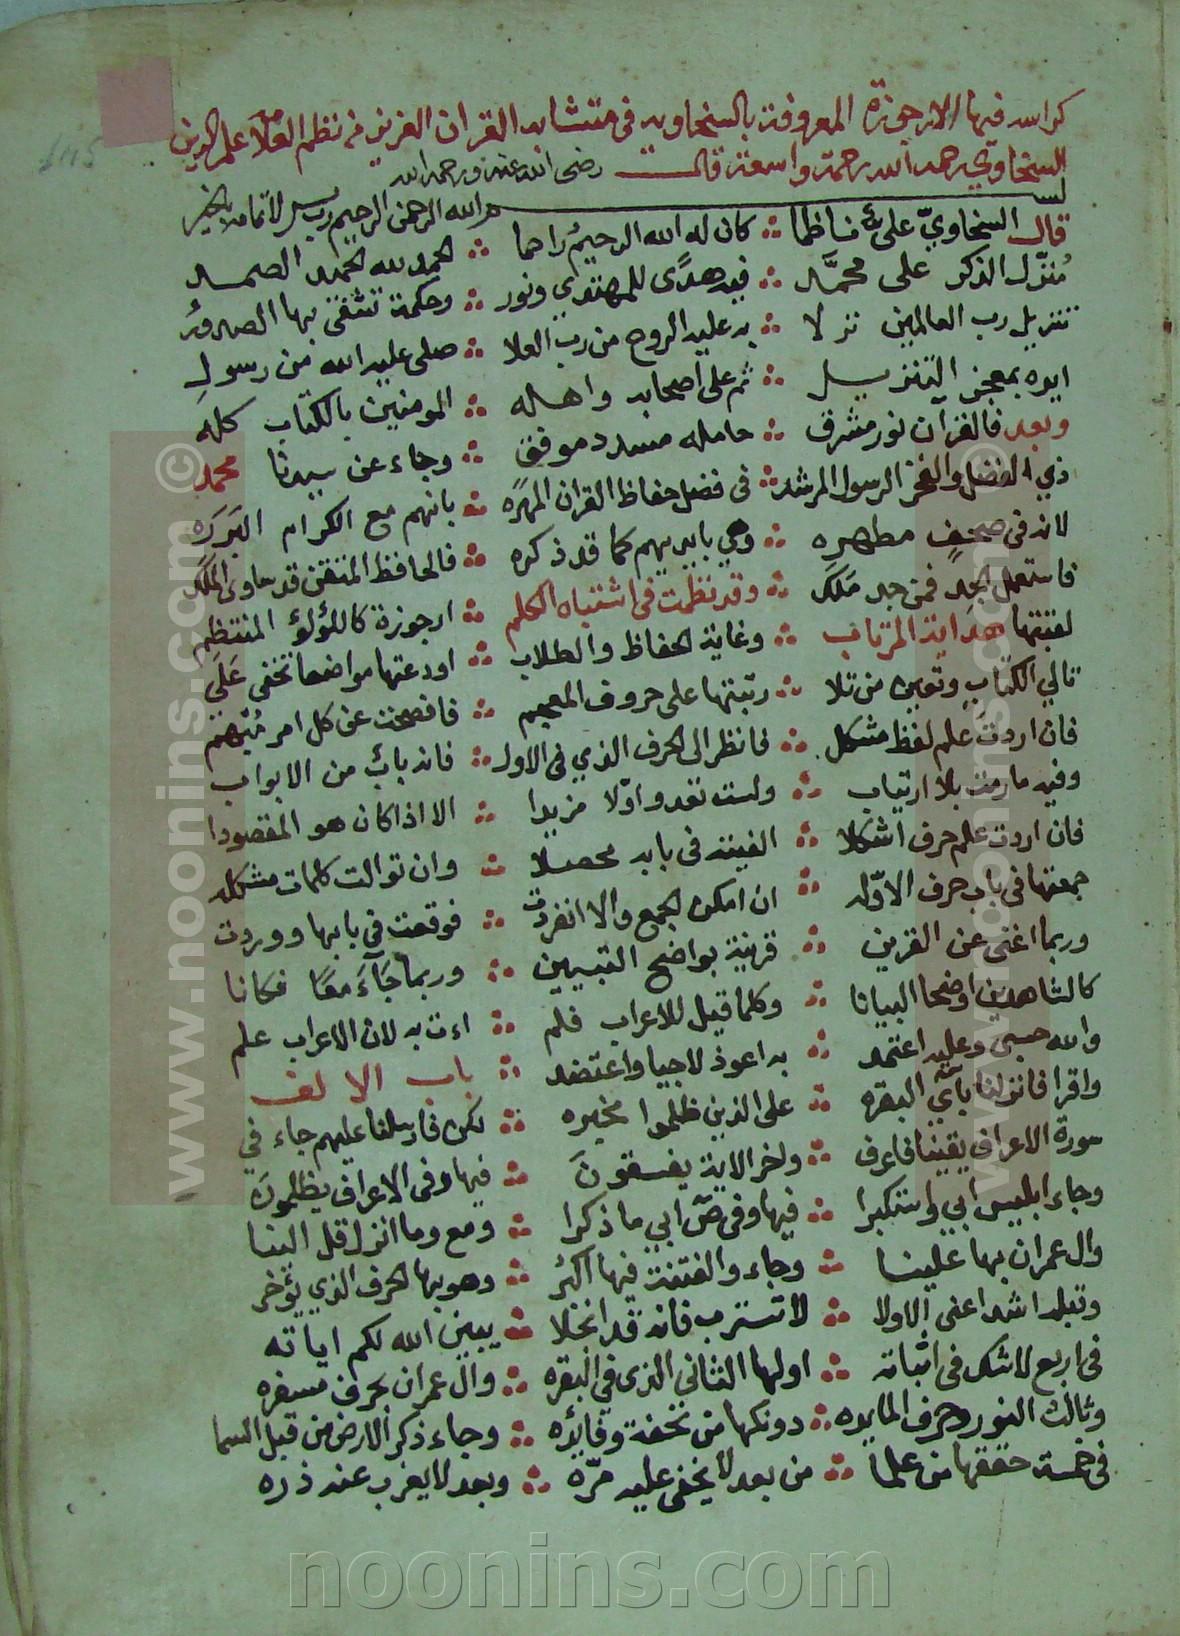 كراسة فيها الارجوزة المعروفة بالسخاويه في متشابه القران العزيز من نظم العلامة علم الدين
السخاوي رحمه الله رحمة واسعة قال رضى الله عنه ورحمه الله
بسم الله الرحمن الرحيم رب يسر لاتمامه بالخير
قال السخاوي علي ناظما ∴ كان له الله الرحيم راحما ∴ الحمد لله الحميد الصمد
منزل الذكر على محمد ∴ فيه هدى للمهتدي ونور ∴ وحكمة تشفى بها الصدور
تنزيل رب العالمين نزلا ∴ به عليه الروح من رب العلا ∴ صلى عليه الله من رسول
ايده بمعجز التنزيل ∴ ثم على اصحابه واهله ∴ المومنين بالكتاب كله
وبعد فالقران نور مشرق ∴ حامله مسدد موفق ∴ وجاء عن سيدنا محمد
ذي الفضل والفخر الرسول المرشد ∴ في فضل حفاظ القران المهره ∴ بانهم مع الكرام البرره
لانه في صحف مطهره ∴ وهي بايديهم كما قد ذكره ∴ فالحافظ المتقن قد ساوى الملك
فاستعمل الجد فمن جد ملك ∴ وقد نظمت في اشتباه الكلم ∴ ارجوزة كاللؤلؤ المنتظم
لقبتها هداية المرتاب ∴ وغاية الحفاظ والطلاب ∴ اودعتها مواضعا تخفى على
تالي الكتاب وتعين من تلا ∴ رتبتها على حروف المعجم ∴ فافصحت عن كل امر مبهم
فان اردت علم لفظ مشكل ∴ فانظر الى الحرف الذي في الاول ∴ فانه باب من الابواب
وفيه مارمت بلا ارتياب ∴ ولست تعدو اولا مزيدا ∴ الا اذا كان هو المقصودا
فان اردت علم حرف اشكلا ∴ الفيته في بابه محصلا ∴ وان توالت كلمات مشكله
جمعتها في باب حرف الاوله ∴ ان امكن الجمع والا انفردت ∴ فوقعت في بابها ووردت
وربما اغنى عن القرين ∴ قرينة بواضح التبيين ∴ وربما جآءَ معا فكانا
كالشاهدين اوضحا البيانا ∴ وكلما قيل للاعراب فلم ∴ اءت به لان الاعراب علم
والله حسبي وعليه اعتمد ∴ به اعوذ لاجيا واعتضد ∴ باب الالف
واقرا فانزلنا بآي البقره ∴ على الذين ظلموا مخبره ∴ لكن فارسلنا عليهم جاء في
سورة الاعراف يقينا فاعرف ∴ واخر الاية يفسقون ∴ فيها وفى الاعراف يظلمون
وجاء ابليس ابي واستكبرا ∴ فيها وفى ص ابي ما ذكرا ∴ ومع وما انزل قل الينا
وال عمران بها علينا ∴ وجاء والفتنة فيها اكبر ∴ وهو بها الحرف الذي يؤخر
وقبله اشد اعنى الاولا ∴ لا تسترب فانه قد انجلا ∴ يبين الله لكم اياته
في اربع لاشك في اثباته ∴ اولها الثاني الذى في البقره ∴ وال عمران بحرف مسفره
وثالث النور وحرف المايده ∴ دونكها من تحفة وفائده ∴ وجاء ذكر الارض من قبل السما
في خمسة حققها من علما ∴ من بعد لا يخفى عليه مره ∴ وبعد لا يعزب عنه ذره
www.noonins.com ©
www.noonins.com ©
noonins.com